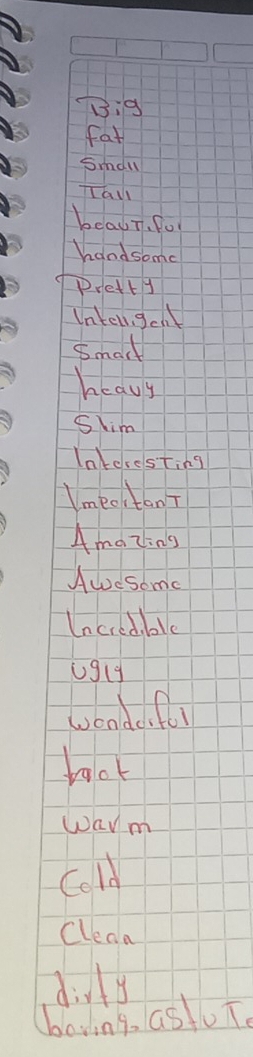 Big
fat
small
Tall
beautiful
handsome
Pretty
Intelligent
Smart
heavy
Slim
Interesting
Important
Amazing
Awesome
Incredible
ugly
wonderful
warm
Cold
Clean
dirty
boring. astute